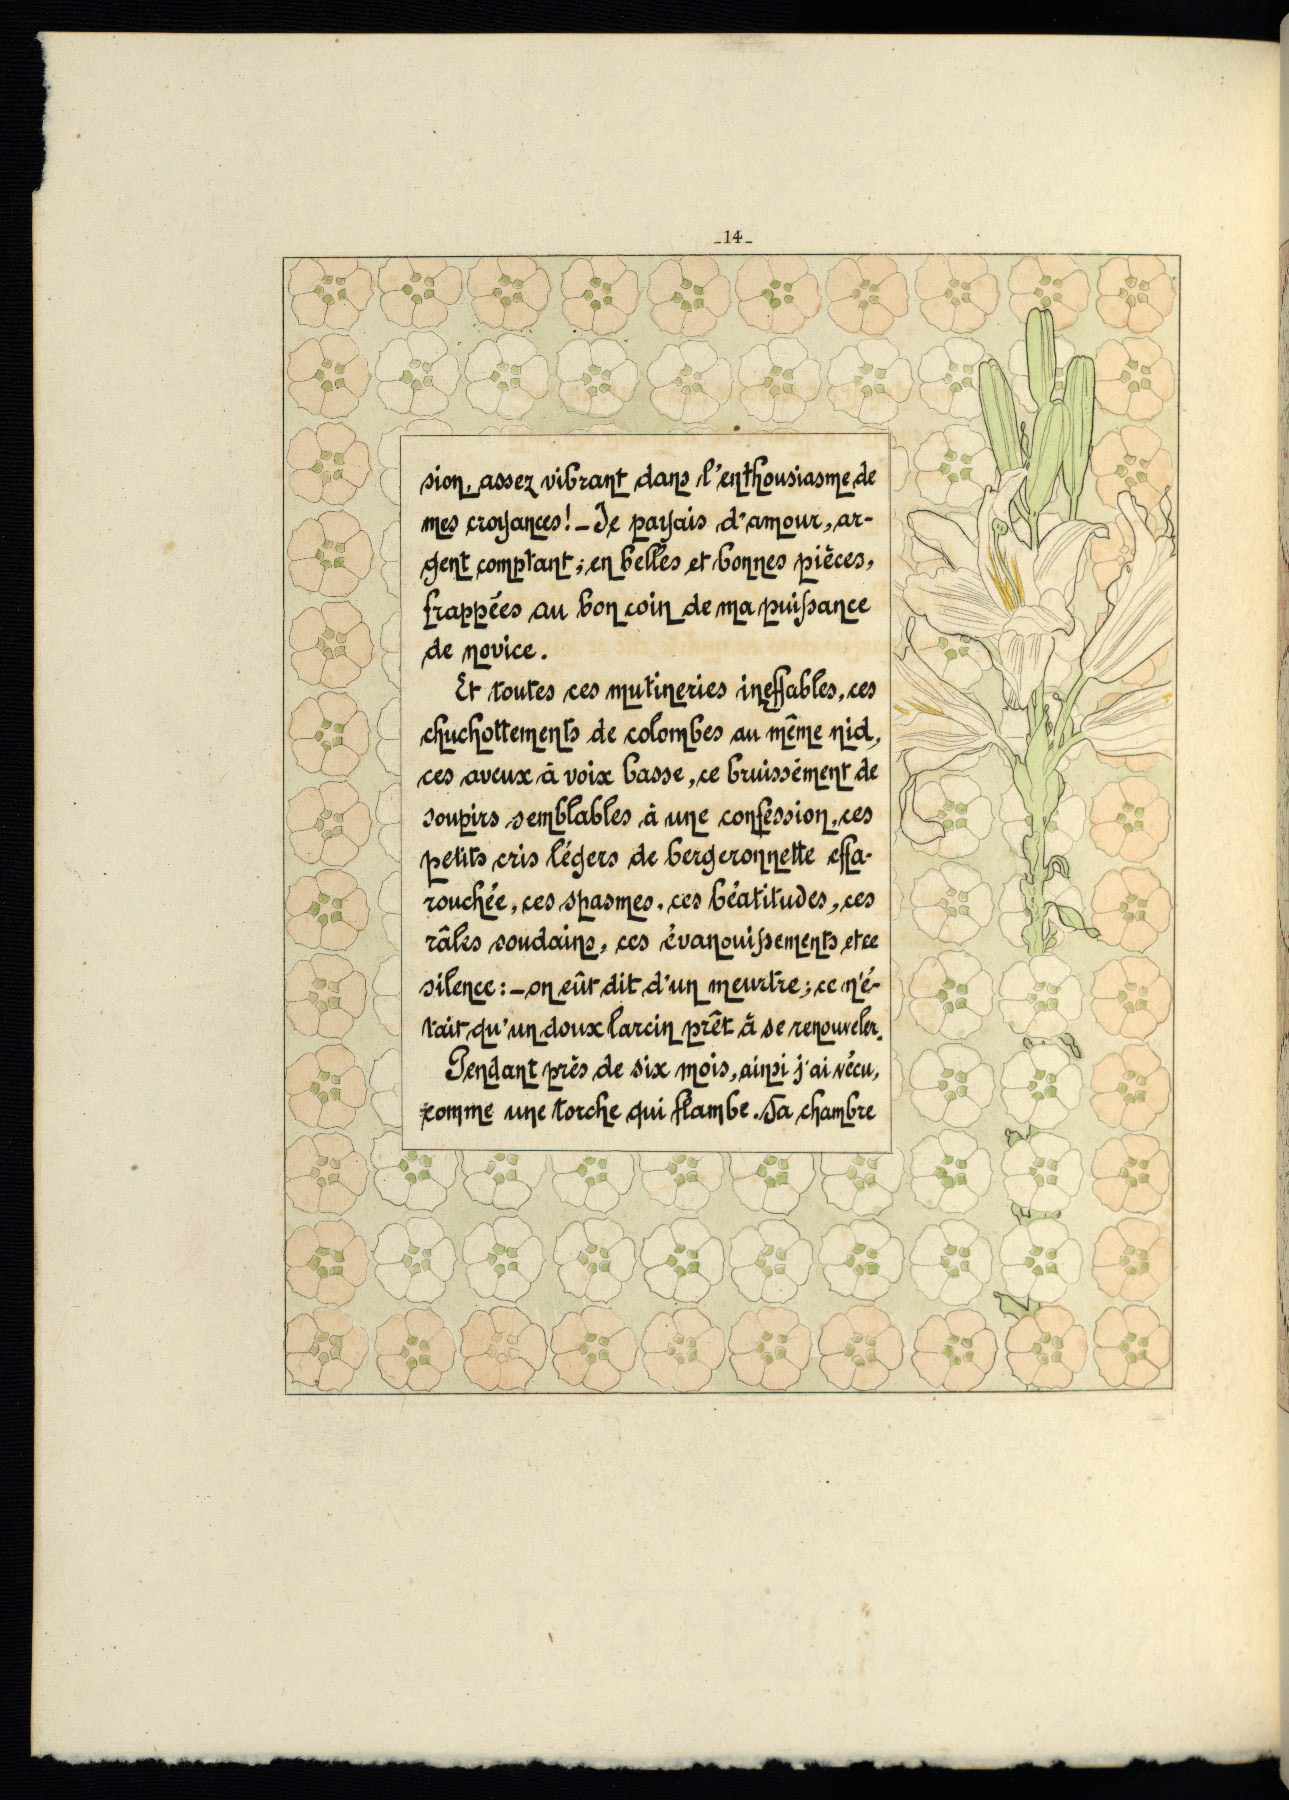 _14_
sion, assez vibrant dans l'enthousiasme de
mes croyances! _ Je payais d'amour, ar-
gent comptant ; en belles et bonnes pièces,
frappées au bon coin de ma puissance
de novice.
Et toutes ces mutineries ineffables, ces
chuchottements de colombes au même nid,
ces aveux à voix basse, ce bruissément de
soupirs semblables à une conféssion, ces
petits cris légers de bergeronnette effa-
rouchée, ces spasmes, ces béatitudes, ces
râles soudains, ces évanouissements et ce
silence : _ on eût dit d'un meurtre ; ce n'é-
tait qu'un doux larcin prêt à se renouveler.
Pendant près de six mois, ainsi j'ai vécu,
comme une torche qui flambe. Sa chambre